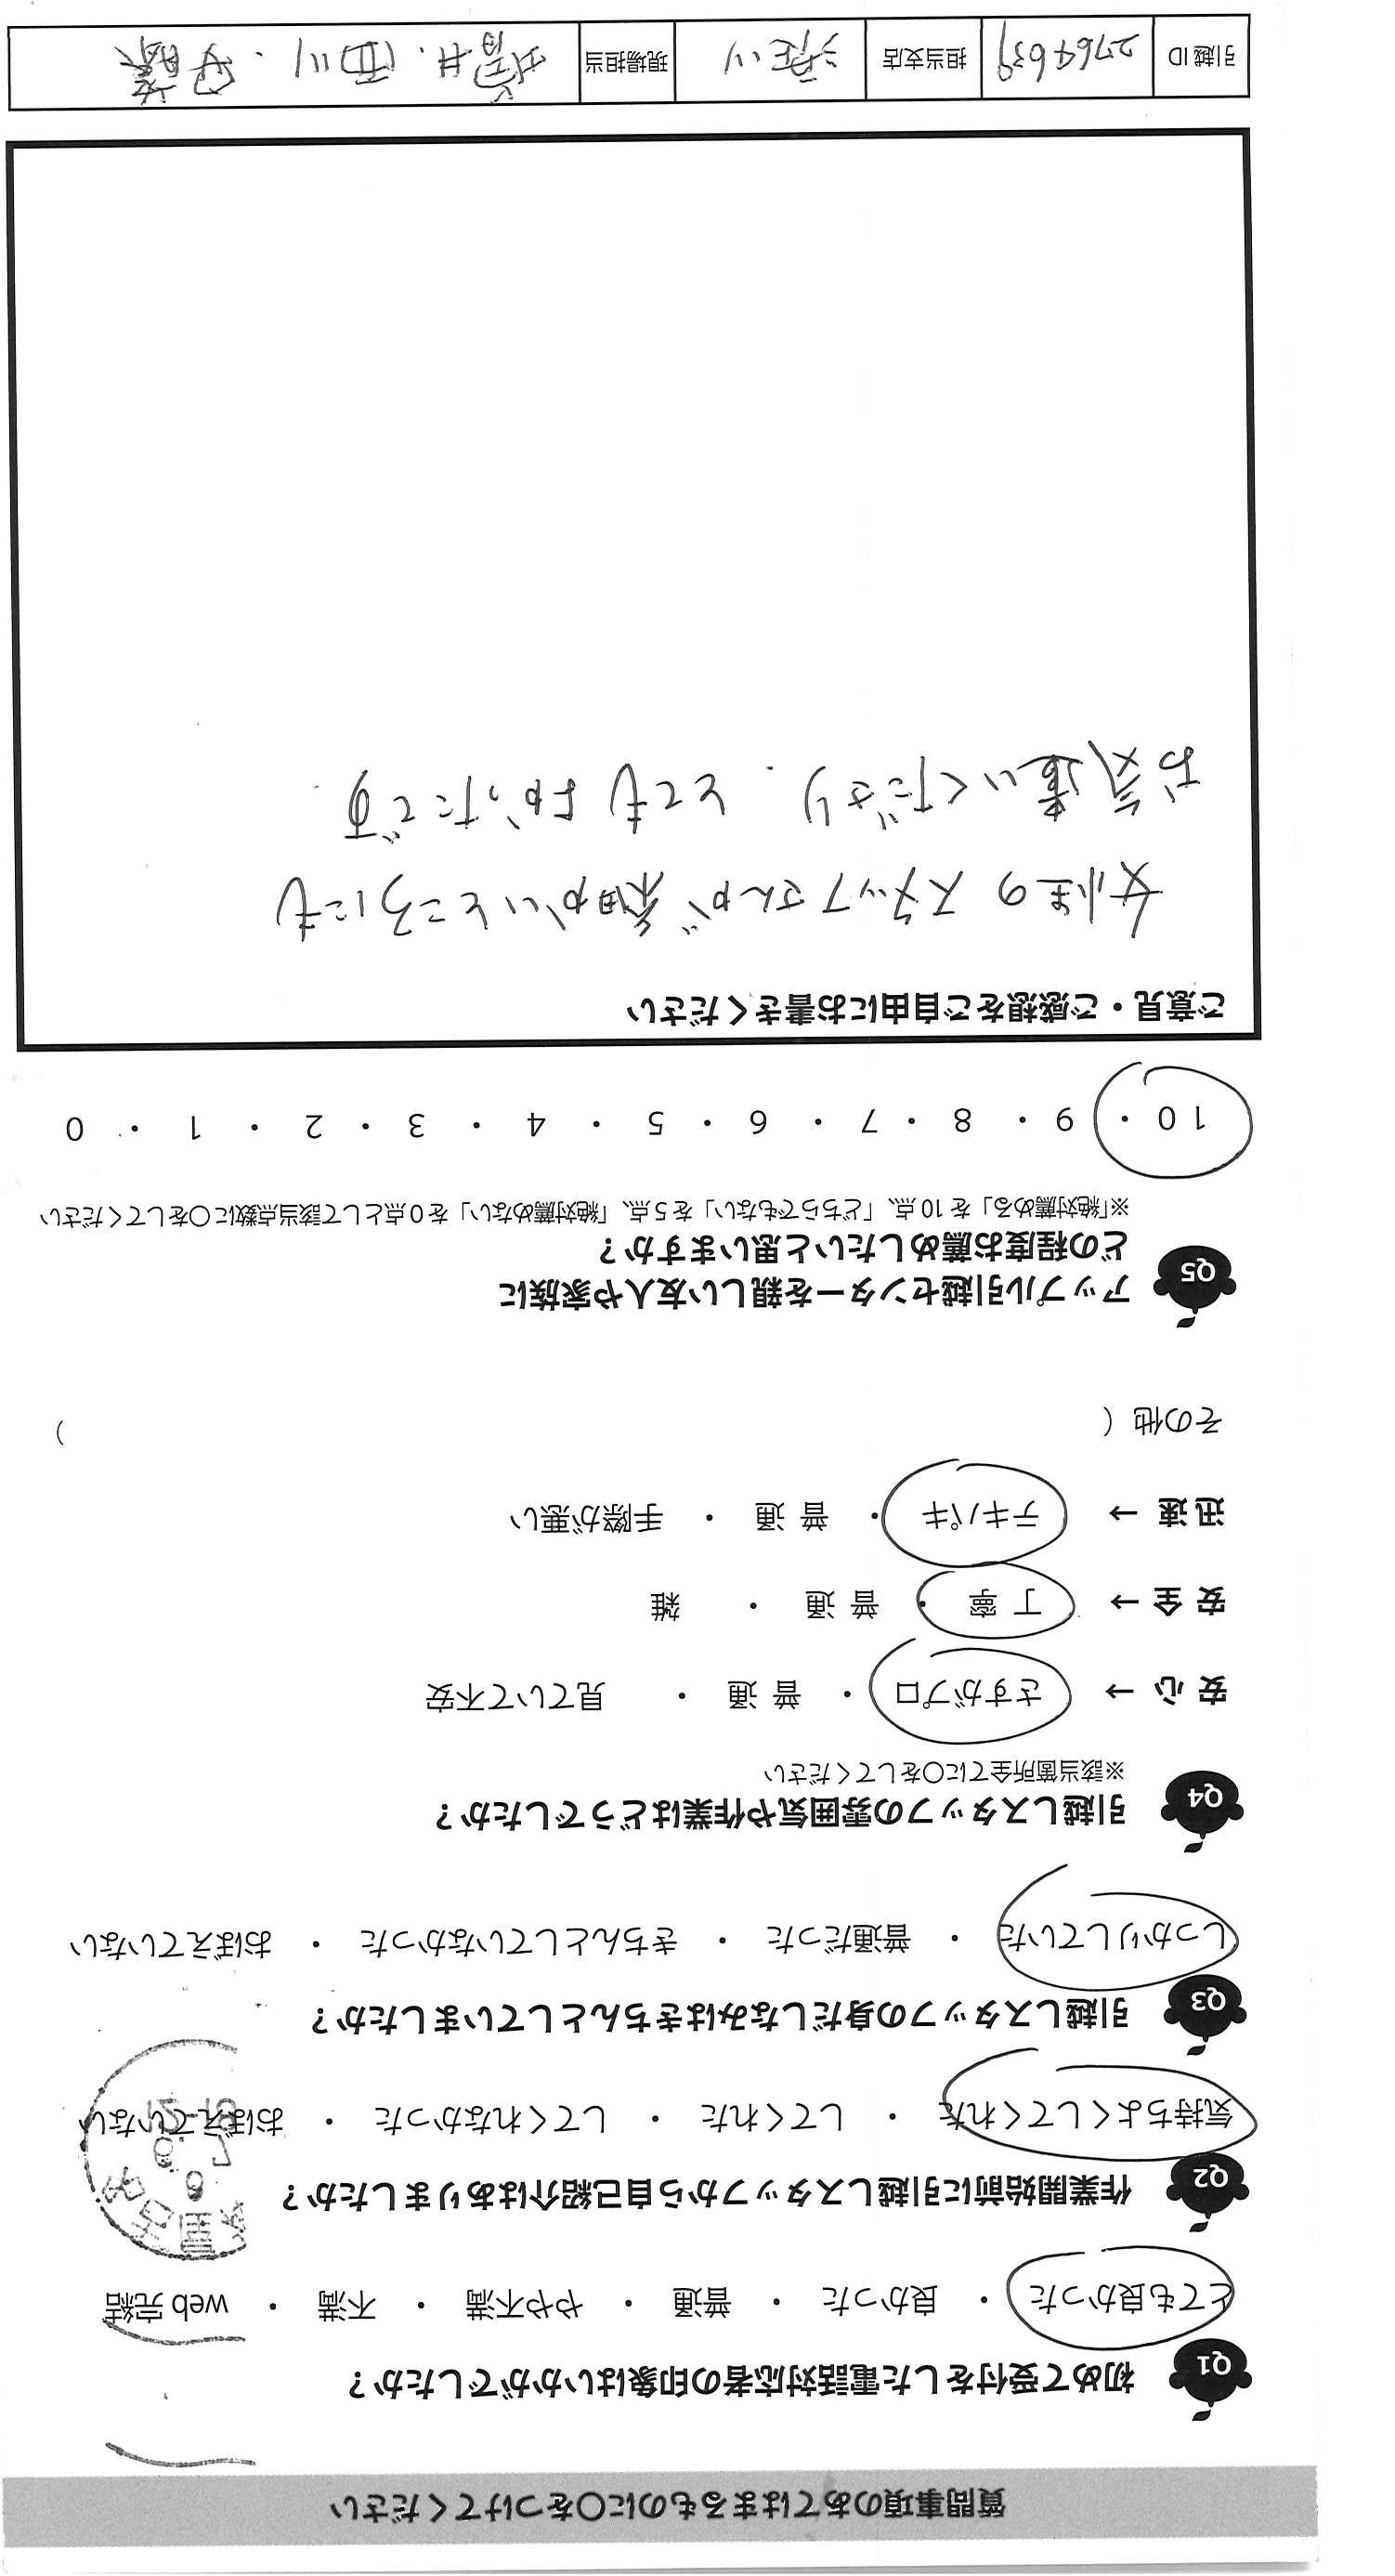 質問事項のあてはまるものに○をつけてください
Q1 初めて受付をした電話対応者の印象はいかがでしたか？
とても良かった ・ 良かった ・ 普通 ・ やや不満 ・ 不満 ・ web 完結
Q2 作業開始前に引越しスタッフから自己紹介はありましたか？
気持ちよくしてくれた ・ してくれた ・ してくれなかった ・ おぼえていない
名古屋
Q3 引越しスタッフの身だしなみはきちんとしていましたか？
しっかりしていた ・ 普通だった ・ きちんとしていなかった ・ おぼえていない
Q4 引越しスタッフの雰囲気や作業はどうでしたか？
※該当箇所全てに○をしてください
安心 → さすがプロ ・ 普通 ・ 見ていて不安
安全 → 丁寧 ・ 普通 ・ 雑
迅速 → テキパキ ・ 普通 ・ 手際が悪い
その他（ ）
Q5 アップル引越センターを親しい友人や家族に
どの程度お薦めしたいと思いますか？
※「絶対薦める」を 10 点、「どちらでもない」を 5 点、「絶対薦めない」を 0 点として該当点数に○をしてください
10 ・ 9 ・ 8 ・ 7 ・ 6 ・ 5 ・ 4 ・ 3 ・ 2 ・ 1 ・ 0
ご意見・ご感想をご自由にお書きください
女性の スタッフさんが 細かいところにも
お気遣いくださり、とても よかったです
引越ID 2764639 担当支店 現場担当 井．西川．伊藤